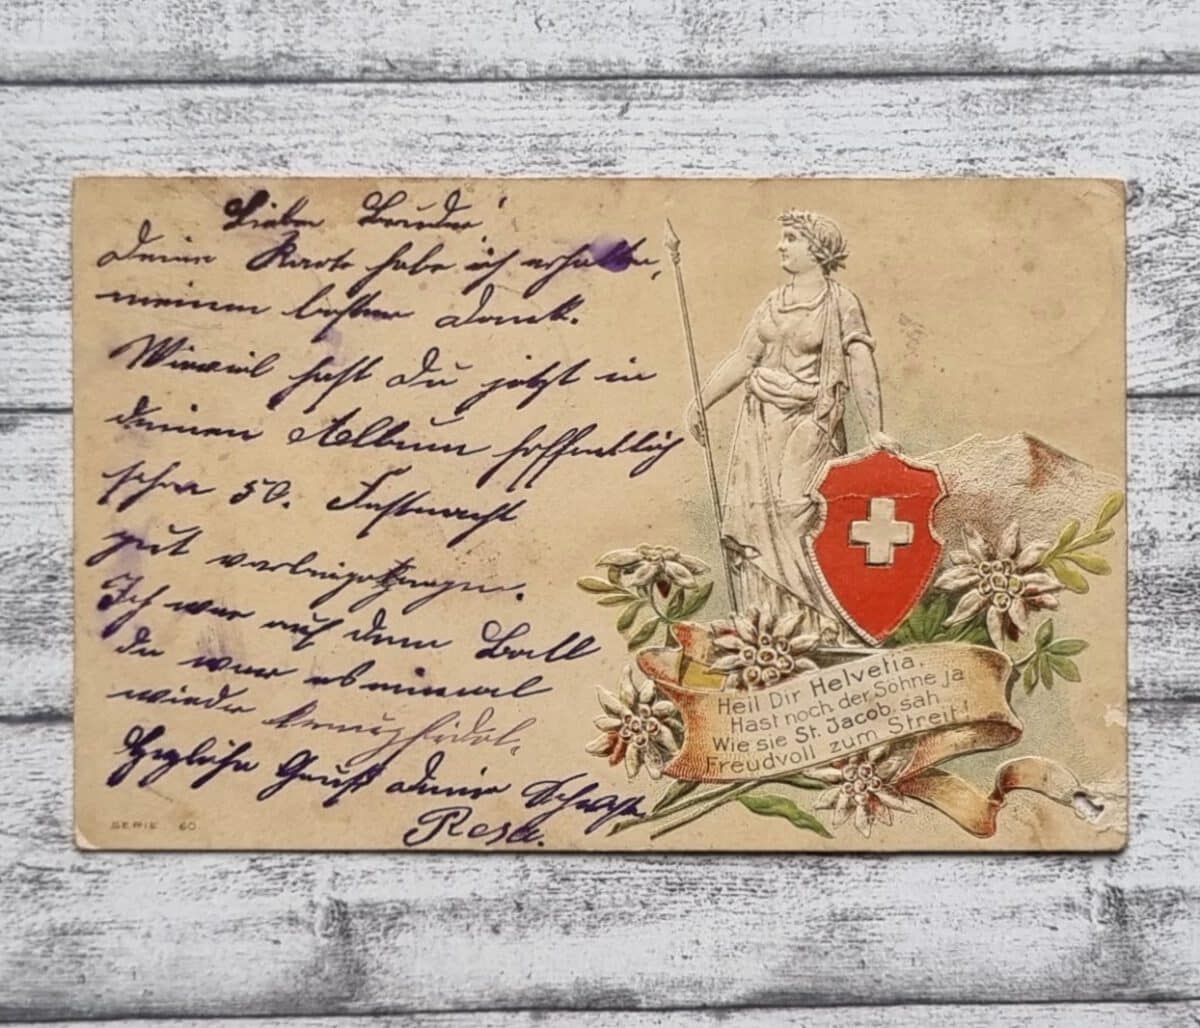 Lieber Bruder!
Deine Karte habe ich erhalten,
meinen besten Dank.
Wieviel hast Du jetzt in
deinem Album hoffentlich
schon 50. Fastnacht
gut verbracht
Ich war auf dem Ball
da war es einmal
wieder kreuzfidel.
Herzliche Gruss deine Schwester
Rosa.
SERIE 60
Heil Dir Helvetia,
Hast noch der Söhne ja
Wie sie St. Jacob sah
Freudvoll zum Streit!